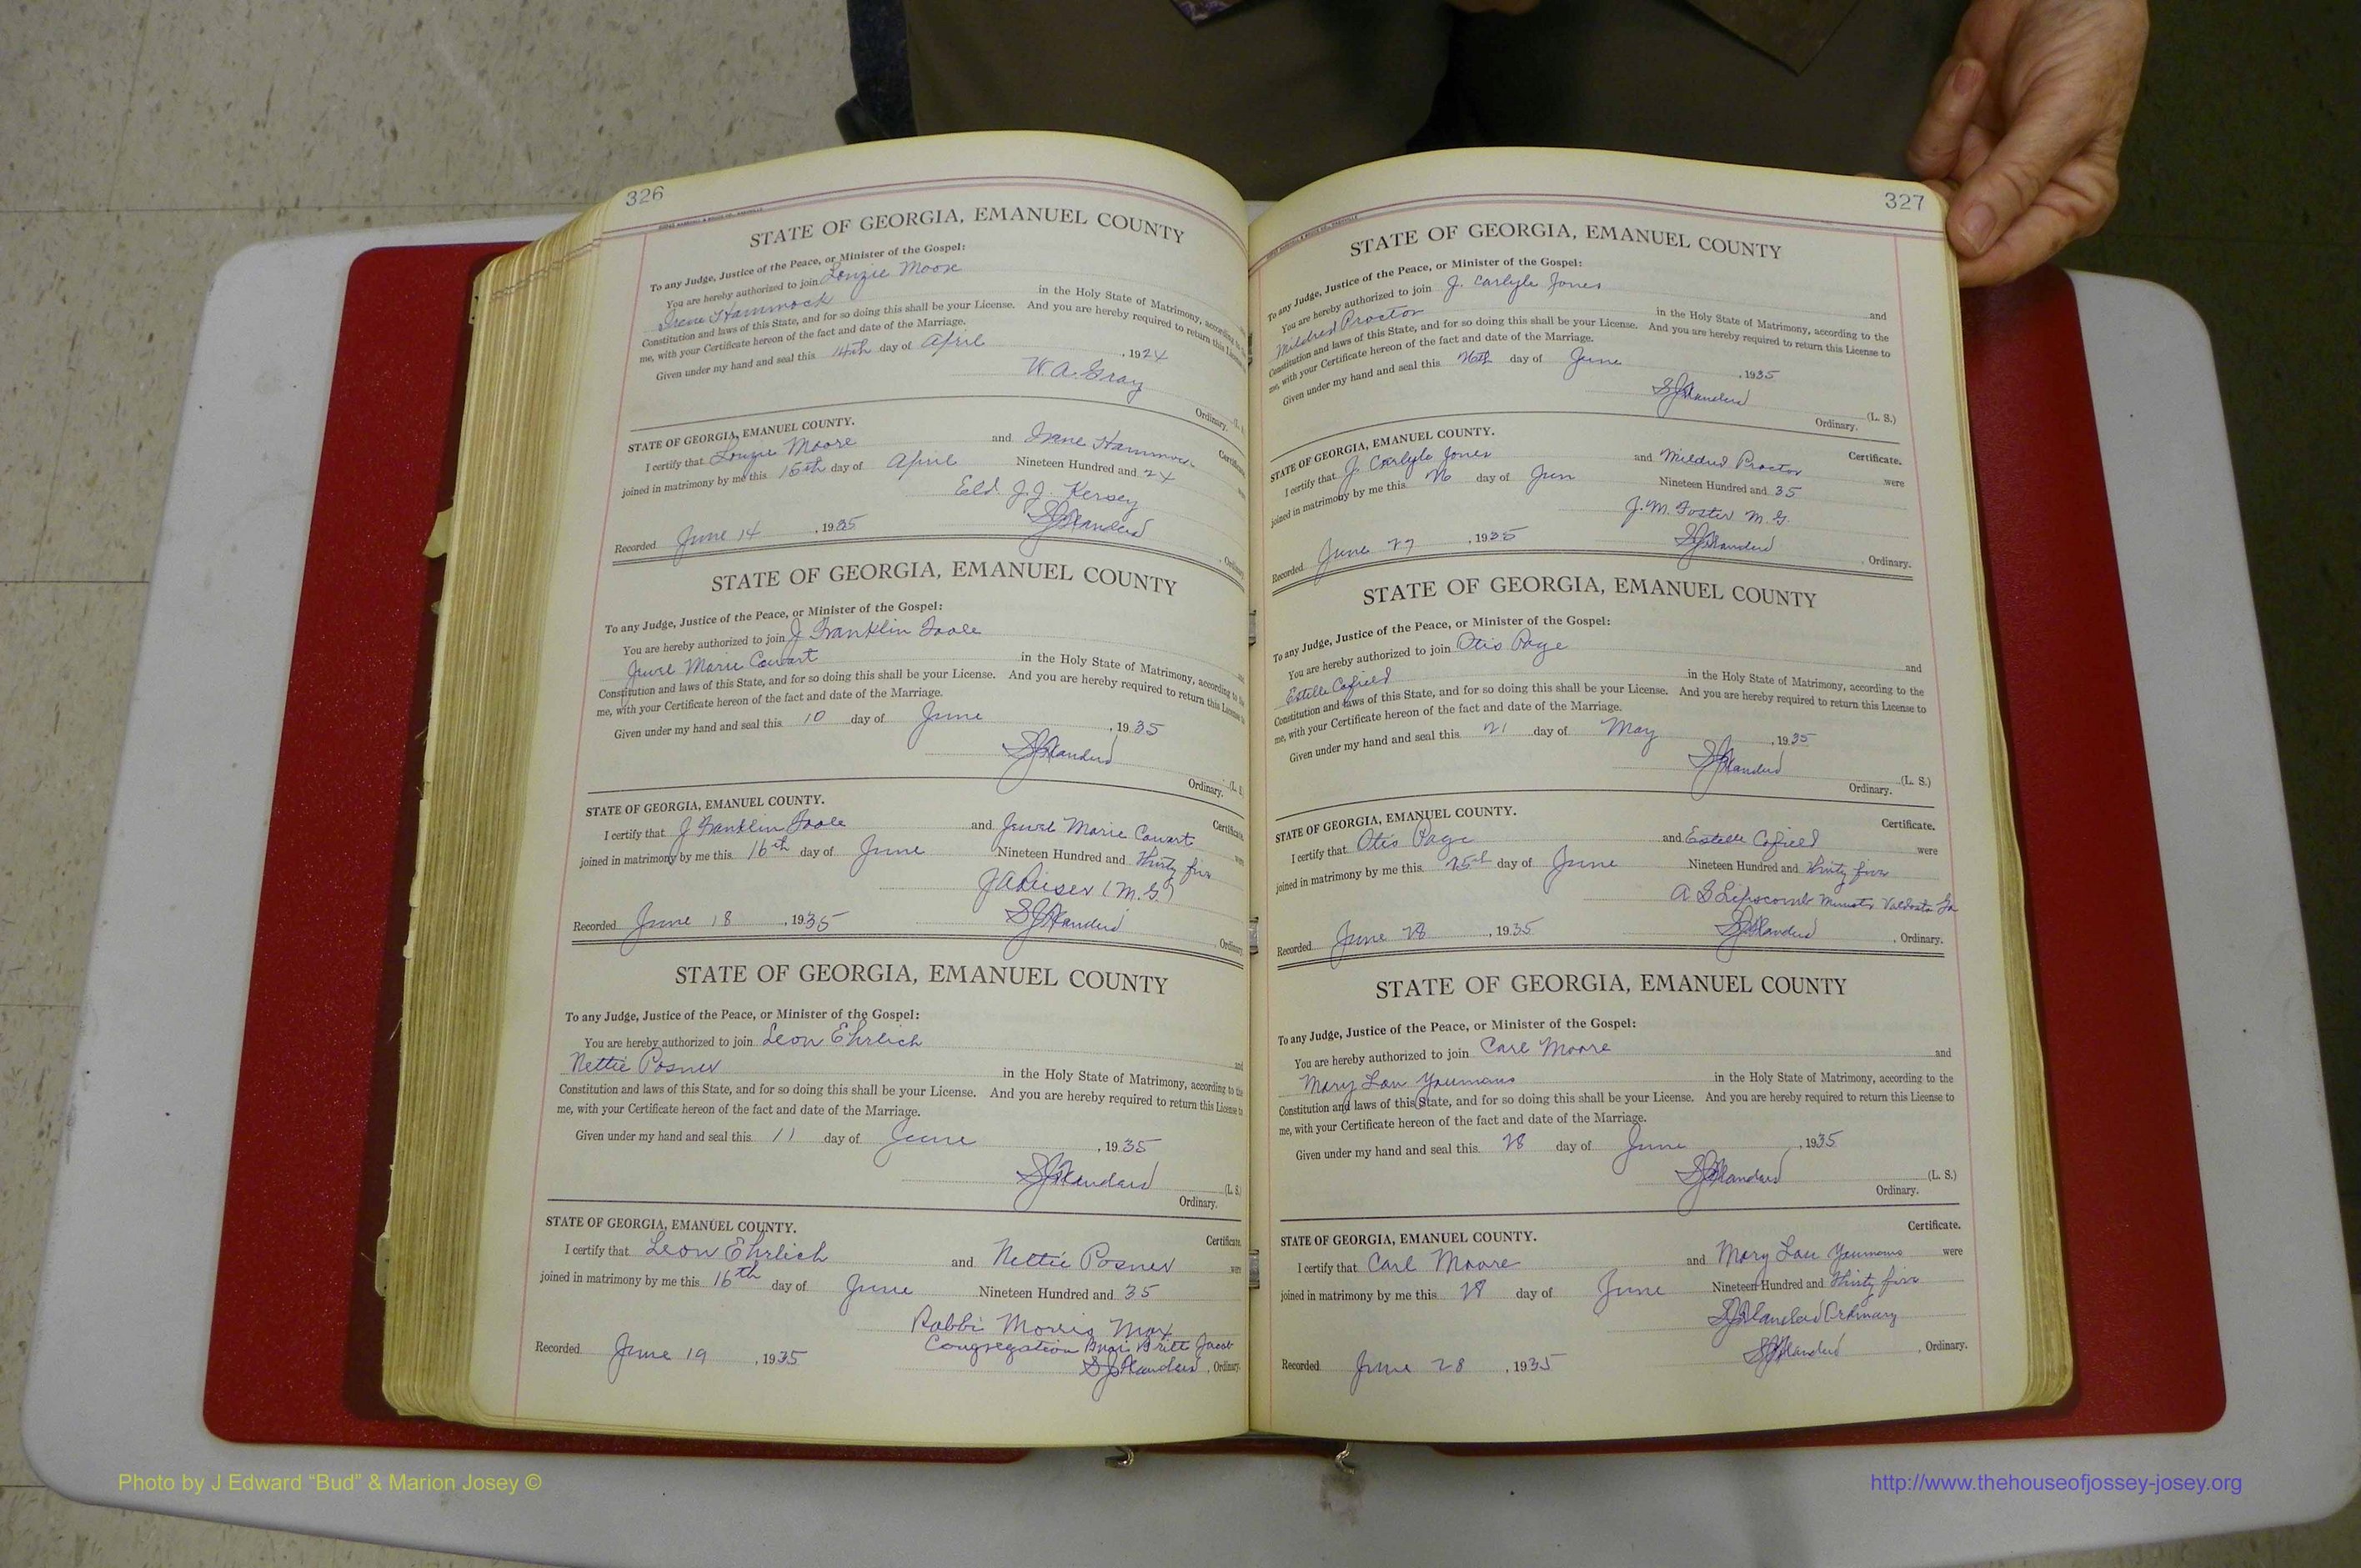 326
STATE OF GEORGIA, EMANUEL COUNTY
To any Judge, Justice of the Peace, or Minister of the Gospel:
You are hereby authorized to join Lonzie Moore
Irene Hammock in the Holy State of Matrimony, according to the
Constitution and laws of this State, and for so doing this shall be your License. And you are hereby required to return this License
me, with your Certificate hereon of the fact and date of the Marriage.
Given under my hand and seal this 14th day of April, 1924
W. A. Gray
Ordinary. (L. S.
STATE OF GEORGIA, EMANUEL COUNTY.
Certificate
I certify that Lonzie Moore and Irene Hammock
joined in matrimony by me this 15th day of April Nineteen Hundred and 24 were
Eld. J. J. Kersey
Recorded June 14, 1935
STATE OF GEORGIA, EMANUEL COUNTY
To any Judge, Justice of the Peace, or Minister of the Gospel:
You are hereby authorized to join J Franklin Toole
Jewel Marie Cowart in the Holy State of Matrimony, according to the
Constitution and laws of this State, and for so doing this shall be your License. And you are hereby required to return this License to
me, with your Certificate hereon of the fact and date of the Marriage.
Given under my hand and seal this 10 day of June, 1935
Ordinary. (L. S.
STATE OF GEORGIA, EMANUEL COUNTY.
Certificate.
I certify that J Franklin Toole and Jewel Marie Cowart
joined in matrimony by me this 16th day of June Nineteen Hundred and Thirty five were
(M.G.)
Recorded June 18, 1935, Ordinary.
STATE OF GEORGIA, EMANUEL COUNTY
To any Judge, Justice of the Peace, or Minister of the Gospel:
You are hereby authorized to join Leon Ehrlich and
Nettie Posner in the Holy State of Matrimony, according to the
Constitution and laws of this State, and for so doing this shall be your License. And you are hereby required to return this License to
me, with your Certificate hereon of the fact and date of the Marriage.
Given under my hand and seal this 11 day of June, 1935
(L. S.)
Ordinary.
STATE OF GEORGIA, EMANUEL COUNTY.
Certificate.
I certify that Leon Ehrlich and Nettie Posner were
joined in matrimony by me this 16th day of June Nineteen Hundred and 35
Rabbi Morris Max
Congregation Bnai Britt Jacob
Recorded June 19, 1935, Ordinary.
327
STATE OF GEORGIA, EMANUEL COUNTY
To any Judge, Justice of the Peace, or Minister of the Gospel:
You are hereby authorized to join J. Carlyle Jones and
Mildred Proctor in the Holy State of Matrimony, according to the
Constitution and laws of this State, and for so doing this shall be your License. And you are hereby required to return this License to
me, with your Certificate hereon of the fact and date of the Marriage.
Given under my hand and seal this 26th day of June, 1935
(L. S.)
Ordinary.
STATE OF GEORGIA, EMANUEL COUNTY.
Certificate.
I certify that J. Carlyle Jones and Mildred Proctor were
joined in matrimony by me this 26 day of Jun Nineteen Hundred and 35
J. M. Foster M. G.
Recorded June 27, 1935, Ordinary.
STATE OF GEORGIA, EMANUEL COUNTY
To any Judge, Justice of the Peace, or Minister of the Gospel:
You are hereby authorized to join Otis Page and
Estelle Cofield in the Holy State of Matrimony, according to the
Constitution and laws of this State, and for so doing this shall be your License. And you are hereby required to return this License to
me, with your Certificate hereon of the fact and date of the Marriage.
Given under my hand and seal this 21 day of May, 1935
(L. S.)
Ordinary.
STATE OF GEORGIA, EMANUEL COUNTY.
Certificate.
I certify that Otis Page and Estelle Cofield were
joined in matrimony by me this 25th day of June Nineteen Hundred and Thirty five
A G Lipscomb Minister Valdosta Ga
Recorded June 28, 1935, Ordinary.
STATE OF GEORGIA, EMANUEL COUNTY
To any Judge, Justice of the Peace, or Minister of the Gospel:
You are hereby authorized to join Carl Moore and
Mary Lou Youmans in the Holy State of Matrimony, according to the
Constitution and laws of this State, and for so doing this shall be your License. And you are hereby required to return this License to
me, with your Certificate hereon of the fact and date of the Marriage.
Given under my hand and seal this 28 day of June, 1935
(L. S.)
Ordinary.
STATE OF GEORGIA, EMANUEL COUNTY.
Certificate.
I certify that Carl Moore and Mary Lou Youmans were
joined in matrimony by me this 28 day of June Nineteen Hundred and Thirty five
Ordinary
Recorded June 28, 1935, Ordinary.
Photo by J Edward “Bud” & Marion Josey ©
http://www.thehouseofjossey-josey.org